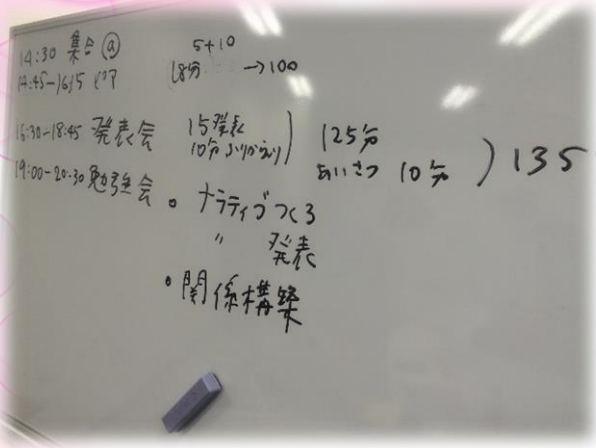 14:30 集合 @
14:45-1615 ピア
5+10
18分 →100
16:30-18:45 発表会
15発表
10分ふりかえり
125分
あいさつ 10分
135
19:00-20:30 勉強会
・ナラティブつくる
〃 発表
・関係構築